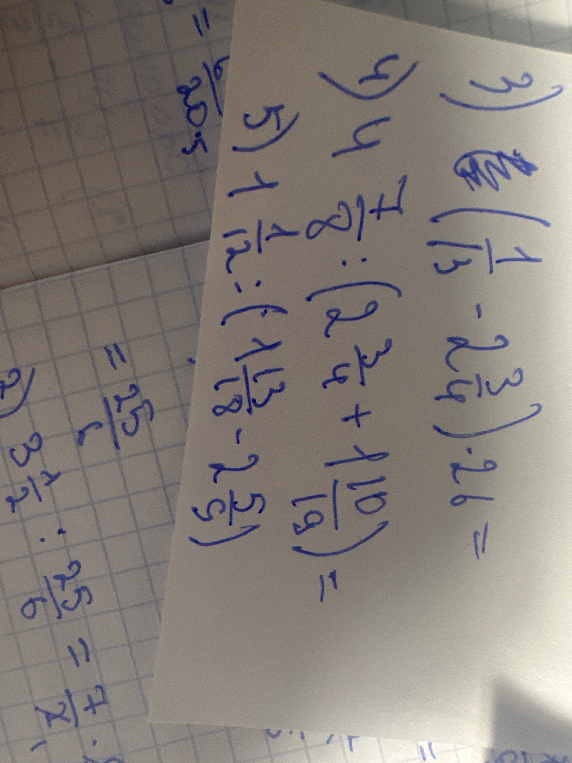 3) (1/13 - 2 3/4) · 26 =
4) 4 7/8 : (2 3/4 + 1 10/19) =
5) 1 1/12 : (1 13/18 - 2 5/9)
= 6/20·5
= 25/6
2) 3 1/2 : 25/6 = 7/2 ·